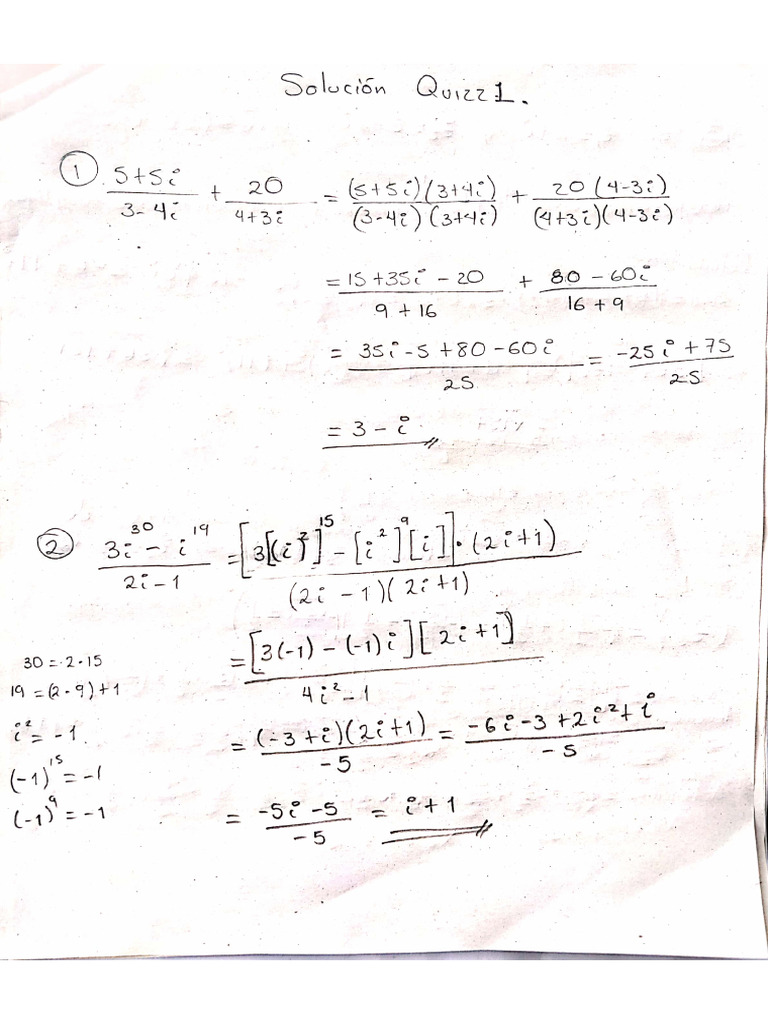 Solución Quizz 1.
① (5+5i)/(3-4i) + 20/(4+3i) = (5+5i)(3+4i)/(3-4i)(3+4i) + 20(4-3i)/(4+3i)(4-3i)
= (15+35i-20)/(9+16) + (80-60i)/(16+9)
= (35i-5+80-60i)/25 = (-25i+75)/25
= 3-i
② (3i^30 - i^19)/(2i-1) = [3[(i)^2]^15 - [i^2]^9[i]]·(2i+1)/(2i-1)(2i+1)
= [3(-1)-(-1)i][2i+1]/(4i^2-1)
30=2·15
19=(2·9)+1
i^2=-1
(-1)^15=-1
(-1)^9=-1
= (-3+i)(2i+1)/-5 = (-6i-3+2i^2+i)/-5
= (-5i-5)/-5 = i+1